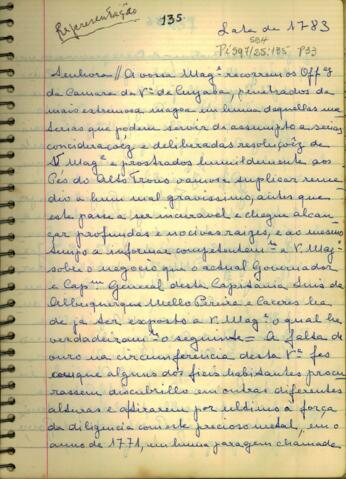 Representação
135
Lata de 1783
SB4
Pi 597/25:135 P33
Senhora // A vossa Mag.e recorremos Off.es
da Camara da V.a de Cuyabá, penetrados da
mais extremosa magoa em huma daquellas ma
terias que podem servir de assumpto a serias
conciderações e deliberadas resoluções de
V. Mag.e e prostrados humildemente aos
Pés do Alto Trono vamos suplicar reme
dio a hum mal gravissimo, antes que
este passe a ser incuravel e chegue alcan
çar profundas e nocivas raizes, e ao mesmo
tempo a informar competentem.te a V. Mag.e
sobre o negocio que o actual Governador
e Cap.m General desta Capitania Luis de
Albuquerque Mello Pereira e Caceres ha
de já ter exposto a V. Mag.e o qual he
verdadeiram.te o seguinte = A falta de
ouro na circumferencia desta V.a fes
com que alguns dos fieis habitantes procu
rassem descubrillo em outras diferentes
alturas e por ultimo a força
da diligencia com este precioso metal, em o
anno de 1771, em huma paragem chamada